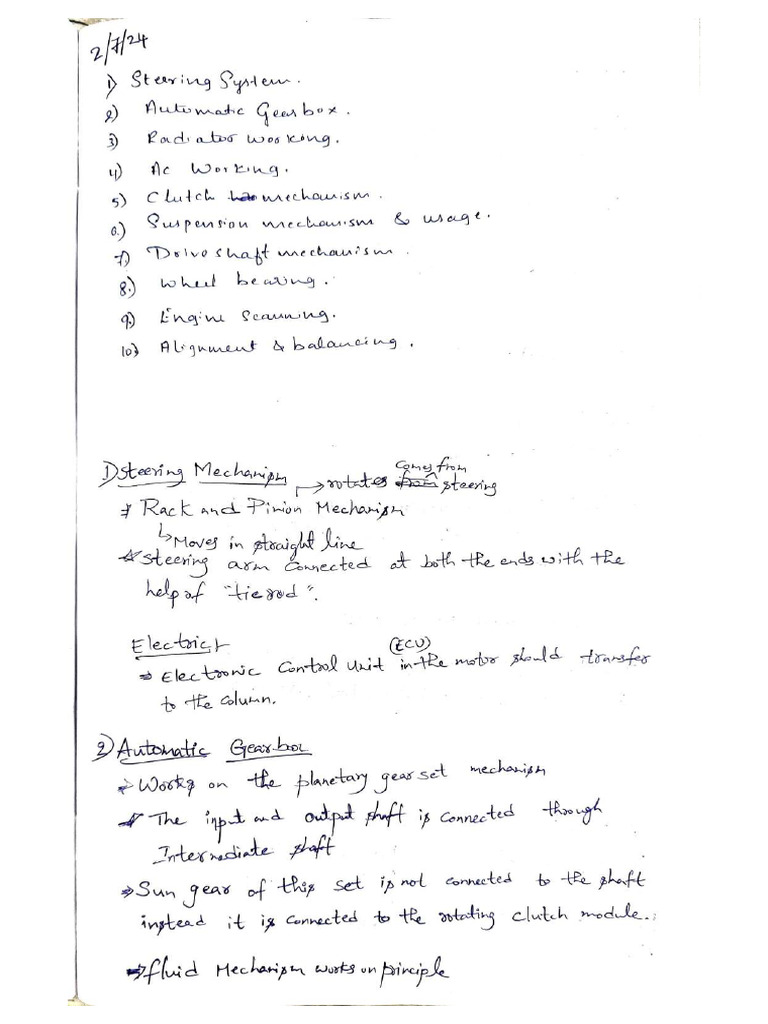 2/7/24
1) Steering System.
2) Automatic Gearbox.
3) Radiator working.
4) Ac Working.
5) Clutch mechanism.
6.) Suspension mechanism & usage.
7.) Driveshaft mechanism.
8.) Wheel bearing.
9.) Engine Scanning.
10) Alignment & balancing.
1) Steering Mechanism
→ rotates from comes from steering
* Rack and Pinion Mechanism
↳ Moves in straight line
* Steering arm connected at both the ends with the
help of "tierod".
Electric
⇒ Electronic Control Unit (ECU) in the motor should transfer
to the column.
2) Automatic Gearbox
→ Works on the planetary gear set mechanism
* The input and output shaft is connected through
Intermediate shaft
⇒ Sun gear of this set is not connected to the shaft
instead it is connected to the rotating clutch module.
⇒ fluid Mechanism works on principle